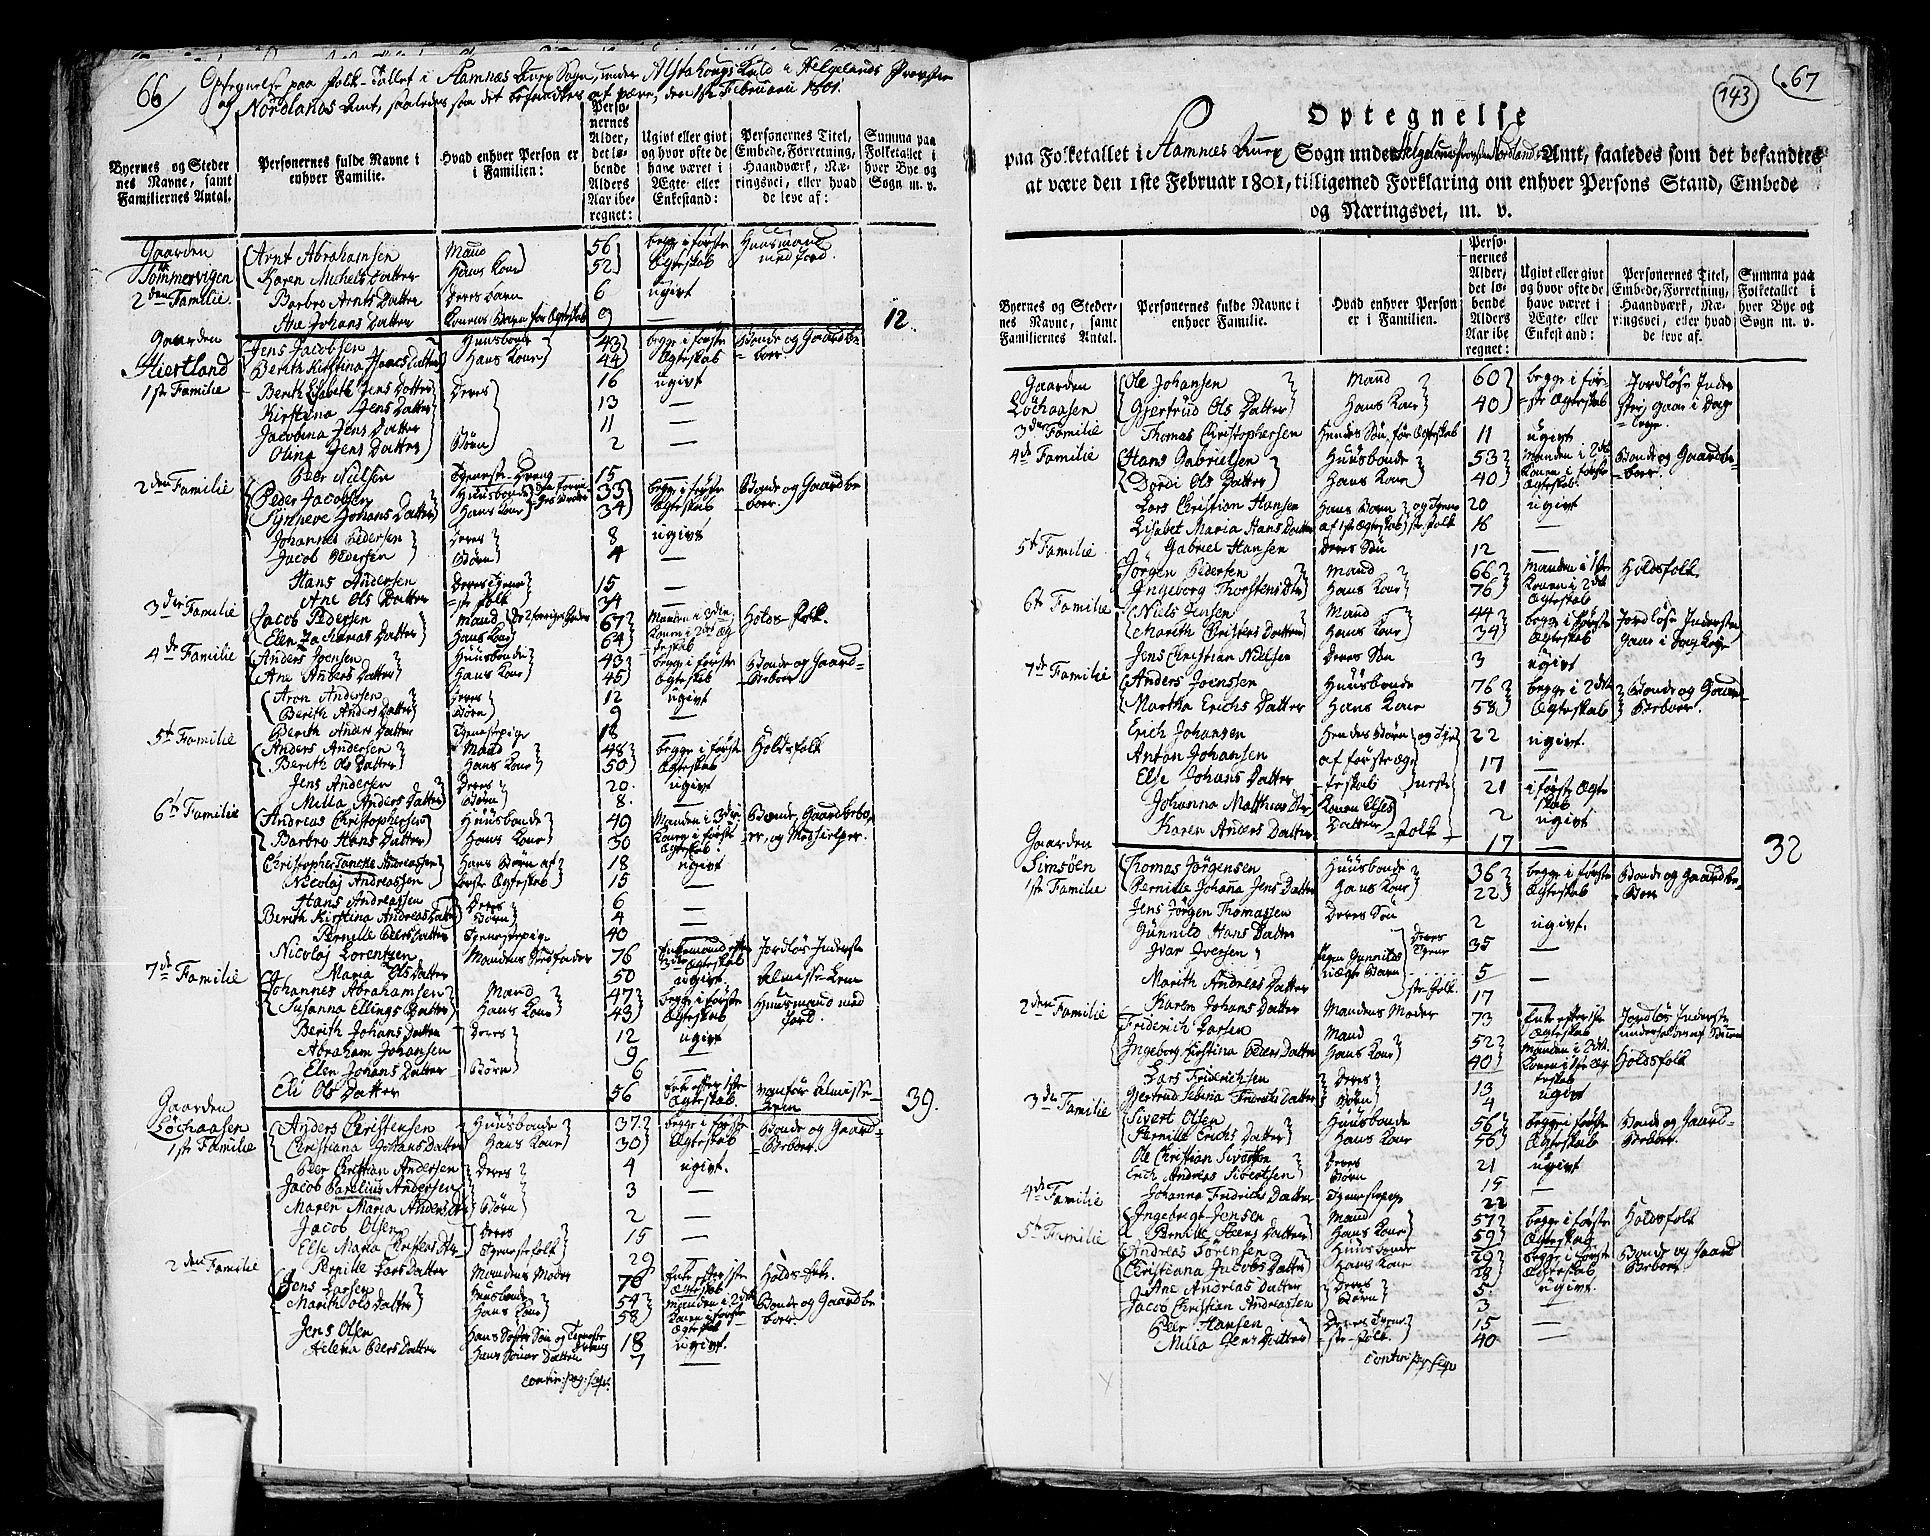 66
Optegnelse paa Folk-Tallet i Stamnes Sogn, under Alstahougs Kald i Helgelands Provstie
og Nordlands Amt, saaledes som det befandtes at være, den 1ste Februarii 1801.
Byernes og Steder nes Navne, samt Familiernes Antal.
Personernes fulde Navne i enhver Familie.
Hvad enhver Person er i Familien:
Personernes Alder, det løbende Alders Aar iberegnet:
Ugivt eller givt og hvor ofte de have været i Ægte- eller Enkestand:
Personernes Titel, Embede, Forretning, Haandværk, Næringsvei, eller hvad de leve af:
Summa paa Folketallet i hver Bye og Sogn m. v.
Gaarden Arnt Abrahamsen Mand 56 begge i første Huusmand
Sommervigen Karen Michels Datter Hans Kone 52 Ægteskab med Jord.
2den Familie. Barbro Arnts Datter Deres Barn 6 ugivt
Ane Johans Datter Konens Barn før Ægteskab 9 — 12.
Gaarden Jens Jacobsen Huusbonde 43 begge i første Bonde og Gaardbe-
Hiertland Berith Kirstina Hans Datter Hans Kone 44 Ægteskab boer
1ste Familie Berith Lisabeth Jens Datter Deres 16 ugivt
Kirstina Jens Datter 13 —
Jacobina Jens Datter 11 —
Olina Jens Datter Børn 2 —
Peer Nielsen Tjeneste Dreng 15 —
2den Familie Peder Jacobsen Huusbonde 33 begge i første Bonde og Gaardbe-
Synneve Johans Datter Hans Kone 34 Ægteskab boer.
Johannes Pedersen Deres 8 ugivt
Jacob Pedersen Børn 4 —
Hans Andersen Deres Tjene- 15 —
Ane Ols Datter ste folk 34 —
3die Familie Jacob Pedersen Mand 67 Manden i 3die Holds-folk.
Elen Zacharias Datter Hans Kone 64 Konen i 2det Ægteskab
4de Familie Anders Joensen Huusbonde 43 begge i første Bonde og Gaard-
Ane Anders Datter Hans Kone 45 Ægteskab Beboer.
Aron Andersen Deres 12 ugivt
Berith Anders Datter Børn 9 —
Berith Anders Datter Tjenestepige 18
5te Familie Anders Andersen Mand 48 begge i første Holdsfolk
Berith Ols Datter Hans Kone 50 Ægteskab
Jens Andersen Deres 20. ugivt
Milla Anders Datter Børn 8. —
6te Familie Andreas Christophersen Huusbonde 49 Manden i 3die Bonde, Gaardbebo-
Barbro Hans Datter Hans Kone 30 Konen i første Ægteskab. er, og Medhielper.
Christopher Tancke Andreassen Hans Børn af 18 ugivt
Nicolaj Andreassen første Ægteskab 15 —
Hans Andreassen Deres 6 —
Berith Kirstina Andreas Datter Børn 4 —
Pernille Peers Datter Tjenestepige 40 —
Nicolaj Lorentzen Mandens Stedfader 76 Enkemand efter 3die Ægteskab Jordløs Inderste
Maria Ols Datter 50 ugivt Almisse-Lem
7de Familie Johannes Abrahamsen Mand 47 begge i første Huusmand med
Susanna Ellings Datter Hans Kone 43 Ægteskab Jord.
Berith Johans Datter Deres 12 ugivt
Abraham Johansen 9 —
Elen Johans Datter Børn 6 —
Eli Ols Datter 56 Enke efter 1ste Ægteskab. vanfør Almisse-Lem 39.
Gaarden Anders Christensen Huusbonde 37 begge i første Bonde og Gaard-
Løchaasen Christiana Johans Datter Hans Kone 30 Ægteskab Beboer.
1ste Familie Peer Christian Andersen Deres 4 ugivt.
Jacob Parelius Andersen 3 —
Maren Maria Anders Dr Børn 2 —
Jacob Olsen Deres 15 —
Else Maria Christens Dtr Tjenestefolk 29
Pernille Lars Datter Mandens Moder 76 Enke efter 1ste Ægteskab Holds-folk.
2den Familie Jens Larsen Huusbonde 54 Manden i 2det Bonde og Gaardbe
Marith Ols Datter Hans Kone 58 Konen i første Ægteskab boer.
Jens Olsen Hans Søster Søn og Tjeneste Dreng 18 ugivt.
Helena Peers Datter Hans Datter 7 —
contin: pag: seqv:
67
143
Optegnelse
paa Folketallet i Stamnes Sogn under Helgelands Provstie Nordlands Amt, saaledes som det befandtes
at være den 1ste Februar 1801, tilligemed Forklaring om enhver Persons Stand, Embede
og Næringsvei, m. v.
Byernes og Stedernes Navne, samt Familiernes Antal.
Personernes fulde Navne i enhver Familie.
Hvad enhver Person er i Familien.
Personernes Alder, det løbende Alders Aar iberegnet:
Ugivt eller givt og hvor ofte de have været i Ægte- eller Enkestand:
Personernes Titel, Embede, Forretning, Haandværk, Næringsvei, eller hvad de leve af.
Summa paa Folketallet i hver Bye og Sogn m. v.
Gaarden Ole Johansen Mand 60 begge i før- Jordløse Inder
Løchaasen Gjertrud Ols Datter Hans Kone 40 ste Ægteskab ster, gaar i Dag-
3die Familie Thomas Christophersen Hendes Søn før Ægteskab 11 ugivt leye.
4de Familie Hans Gabrielsen Huusbonde 53 Manden i 2det Bonde og Gaardbe-
Dordi Ols Datter Hans Kone 40 Konen i første Ægteskab boer.
Lars Christian Hansen Hans Børn og Tjene 20 ugivt
Lisabet Maria Hans Datter af 1ste Ægteskab ste-folk 16 —
Gabriel Hansen Deres Søn 12 —
5te Familie Jørgen Pedersen Mand 66 Manden i 1ste Holdsfolk
Ingeborg Thorstens Dtr Hans Kone 76 Konen i 2det Ægteskab
6te Familie Niels Jensen Mand 44 begge i første Jordløse Inderster
Marith Christens Datter Hans Kone 34 Ægteskab gaar i Dag Leye
Jens Christian Nielsen Deres Søn 3 ugivt
7de Familie Anders Joenssen Huusbonde 76 begge i 2det Bonde og Gaard-
Martha Erichs Datter Hans Kone 58 Ægteskab Beboer.
Erich Johansen Hendes Børn og Tje 22 ugivt.
Anton Johansen af første Æg- 17 —
Else Johans Datter teskab neste 21 i første Ægteskab
Johanna Matthias Dtr Konen Elses Datter 2 ugivt
Karen Anders Datter folk 17 — 32
Gaarden
Simsøen Thomas Jørgensen Huusbonde 36 begge i første Bonde og Gaardbe-
1ste Familie Pernille Johana Jens Datter Hans Kone 22 Ægteskab Boer
Jens Jørgen Thomassen Deres Søn 2 ugivt.
Gunnild Hans Datter Deres 35 —
Ivar Iversen Pigen Gunnilds uægte Barn Tjene 5 —
Marith Andreas Datter ste-folk. 17 —
Karen Johans Datter Mandens Moder 73 Enke efter 1ste Ægteskab Jordløs Inderste
2den Familie Friderich Larsen Mand 52 Manden i 2det Holdsfolk
Ingeborg Kirstina Peders Datter Hans Kone 40 Konen i 1ste Æg- teskab
Lars Friderichsen Deres 13 ugivt
Gjertrud Sebina Fridrichs Datter Børn 4
3die Familie Sivert Olsen Huusbonde 56 begge i første Bonde og Gaard-
Pernille Erichs Datter Hans Kone 56 Ægteskab Beboer.
Ole Christian Sivertsen Deres 21 ugivt
Erich Andreas Sivertsen Børn 15 —
Johanna Fridrichs Datter Tjenestepige 22
4de Familie Ingebregt Jensen Mand 57 begge i første Holdsfolk
Pernille Peers Datter Hans Kone 59 Ægteskab
5te Familie Andreas Sørensen Huusbonde 29 begge i første Bonde og Gaard
Christiana Jacobs Datter Hans Kone 29 Ægteskab Beboer.
Ane Andreas Datter Deres 5 ugivt.
Jacob Christian Andreassen Børn 3 —
Peer Hansen Deres Tjene- 15 —
Milla Jens Datter ste-folk. 40 —
contin: pag seqv